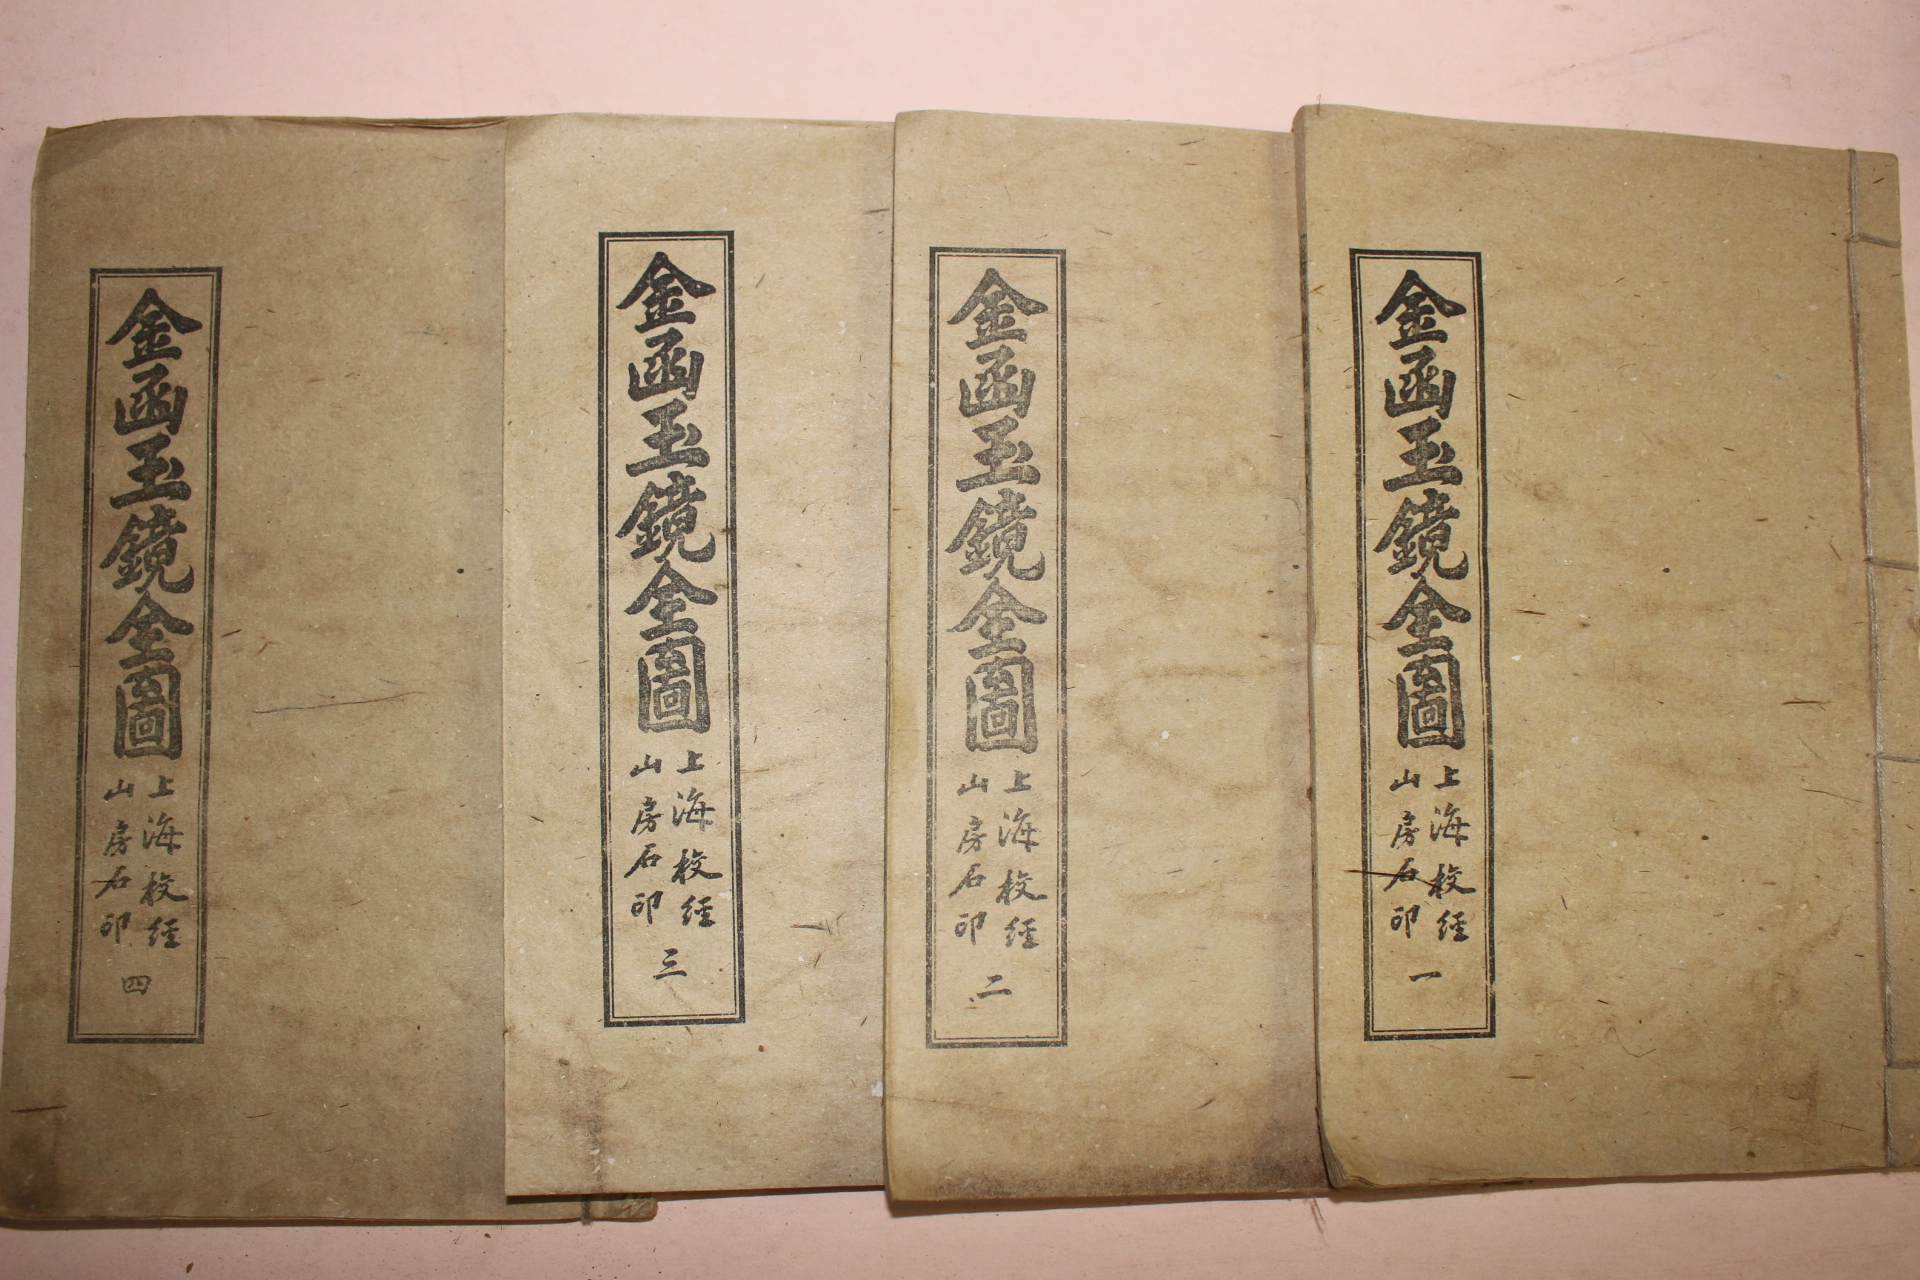 金函玉鏡全圖
上海校經
山房石印
一
金函玉鏡全圖
上海校經
山房石印
二
金函玉鏡全圖
上海校經
山房石印
三
金函玉鏡全圖
上海校經
山房石印
四